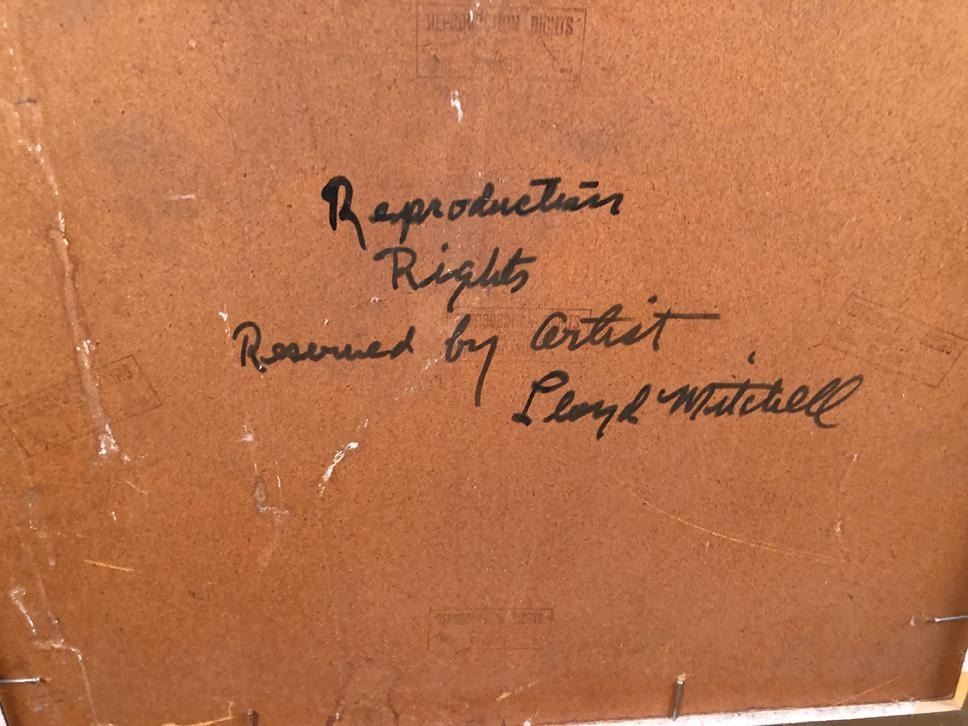 REPRODUCTION RIGHTS
Reproduction
Rights
Reserved by artist
Lloyd Mitchell
REPRODUCTION RIGHTS